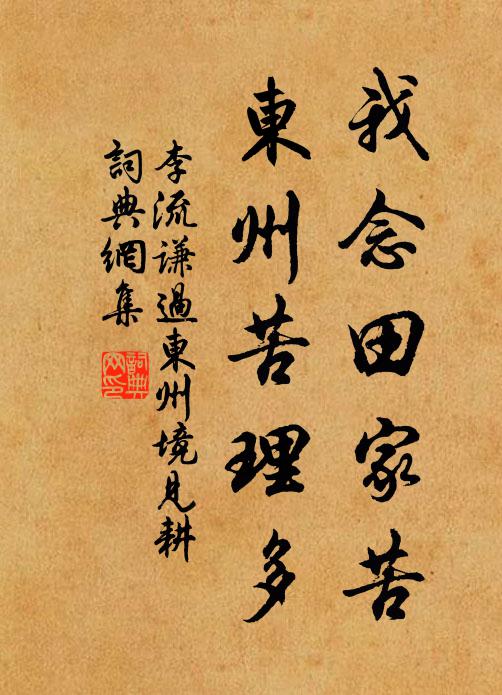 我念田家苦
東州苦理多
李流谦過東州境見耕
詞典網集
詞典
网印